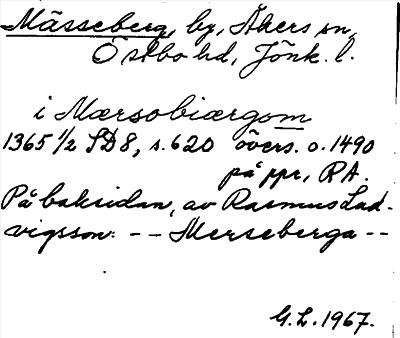 Mässeberg, by, Åkers sn,
Östbo hd, Jönk. l.
i Mærsobiærgom
1365 1/2 SD 8, s. 620 övers. o. 1490
på ppr, RA.
På baksidan, av Rasmus Lud-
vigsson: -- Merseberga --
G.L. 1967.